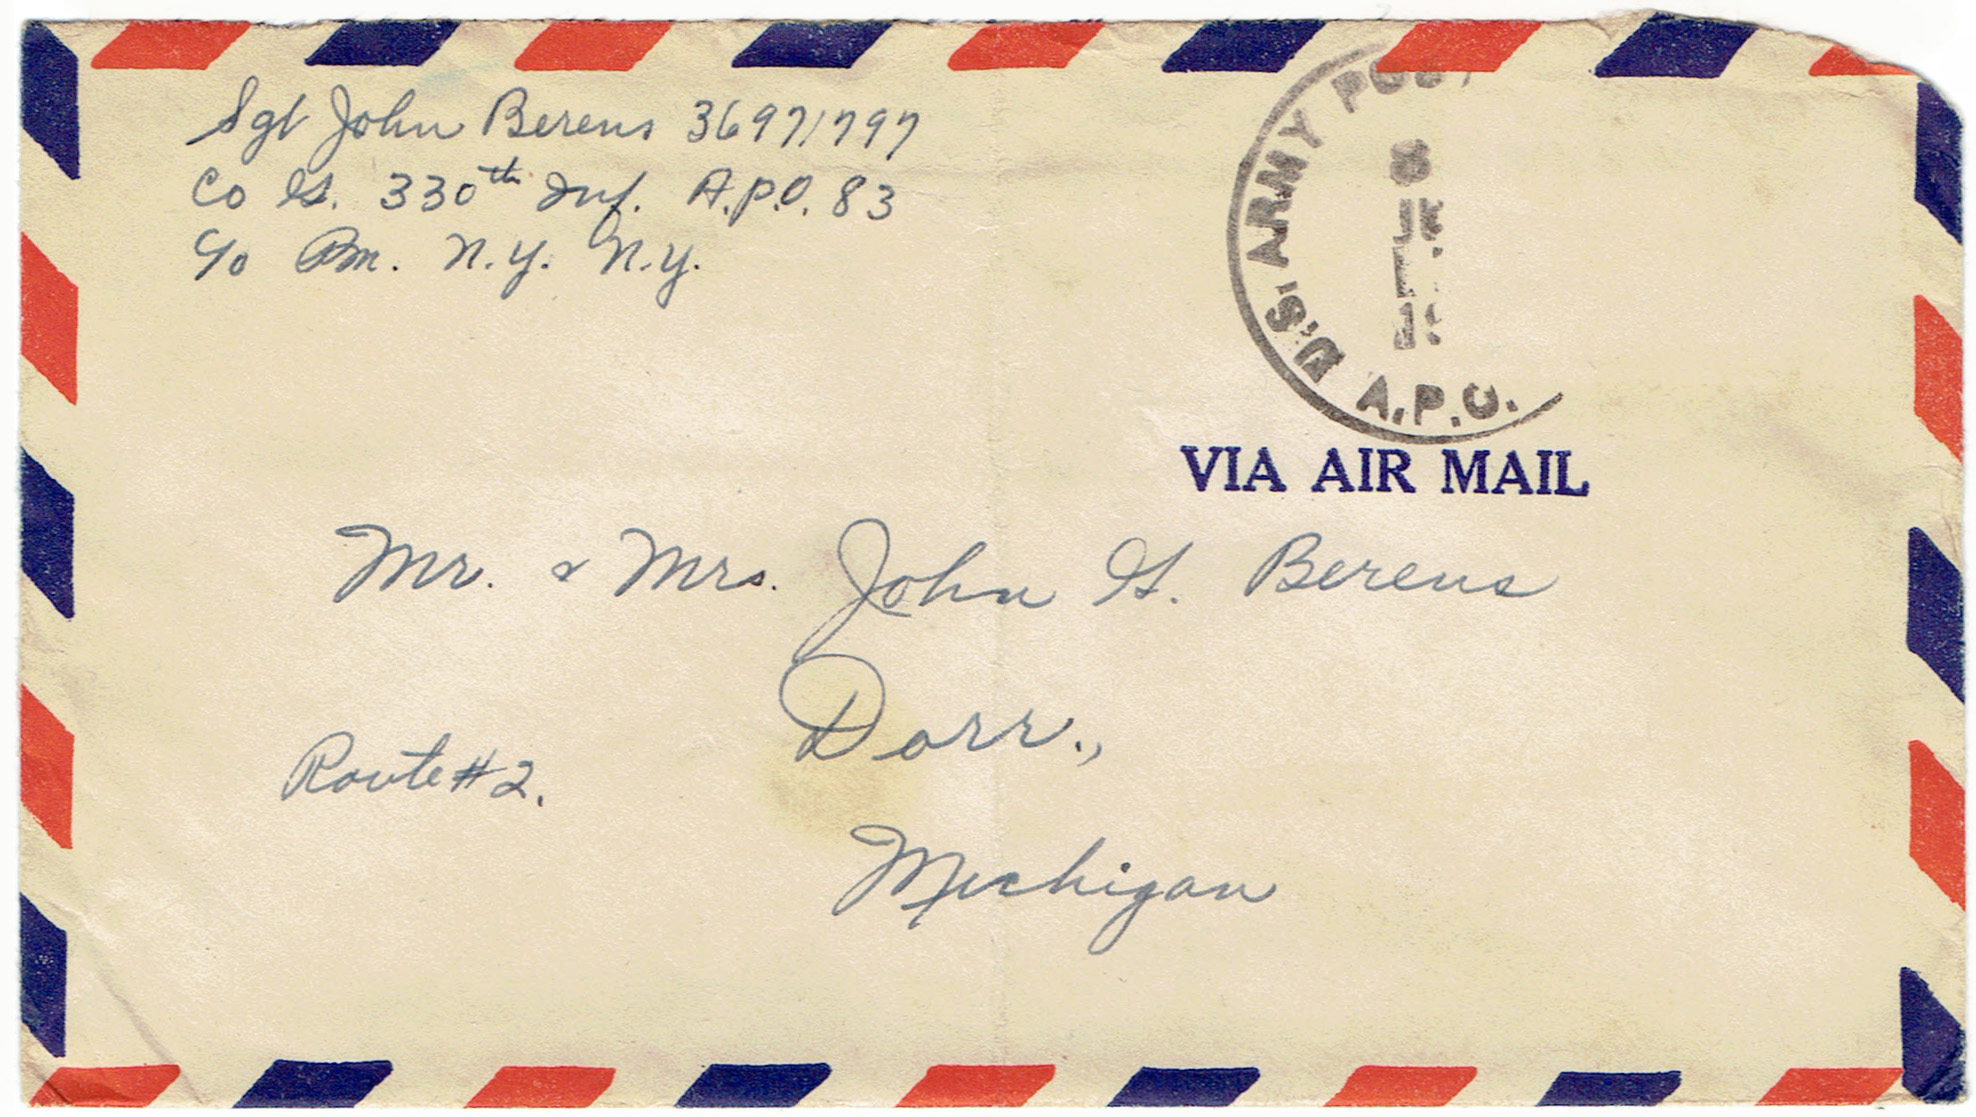 Sgt John Berens 36971797
Co G. 330th Inf. A.P.O. 83
c/o Pm. N.Y. N.Y.
U.S. ARMY POST
A.P.O.
VIA AIR MAIL
Mr. & Mrs. John G. Berens
Dorr.,
Route #2.
Michigan